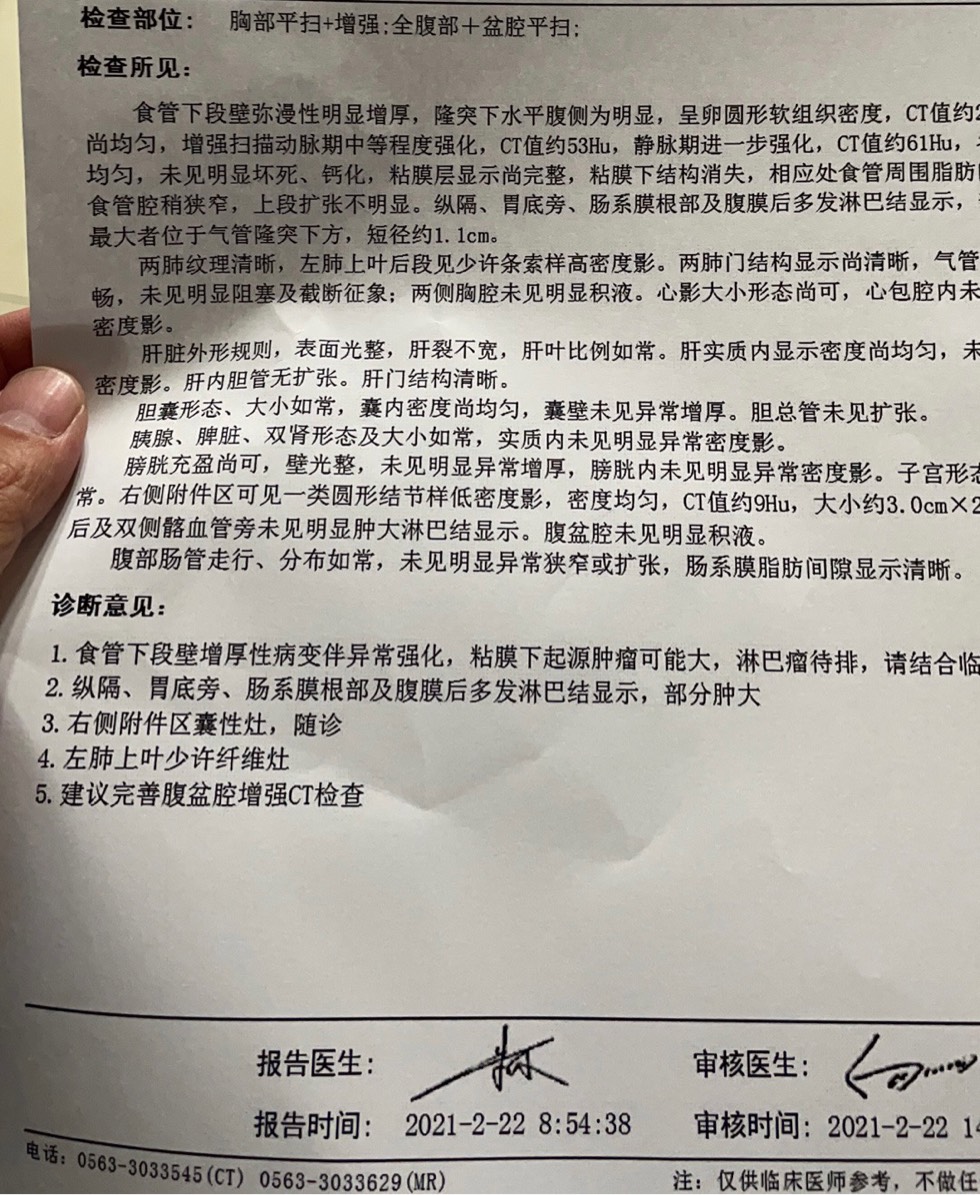 检查部位： 胸部平扫+增强;全腹部＋盆腔平扫;
检查所见：
食管下段壁弥漫性明显增厚，隆突下水平腹侧为明显，呈卵圆形软组织密度，CT值约2
尚均匀，增强扫描动脉期中等程度强化，CT值约53Hu，静脉期进一步强化，CT值约61Hu，
均匀，未见明显坏死、钙化，粘膜层显示尚完整，粘膜下结构消失，相应处食管周围脂肪
食管腔稍狭窄，上段扩张不明显。纵隔、胃底旁、肠系膜根部及腹膜后多发淋巴结显示，
最大者位于气管隆突下方，短径约1.1cm。
两肺纹理清晰，左肺上叶后段见少许条索样高密度影。两肺门结构显示尚清晰，气管
畅，未见明显阻塞及截断征象；两侧胸腔未见明显积液。心影大小形态尚可，心包腔内未
密度影。
肝脏外形规则，表面光整，肝裂不宽，肝叶比例如常。肝实质内显示密度尚均匀，未
密度影。肝内胆管无扩张。肝门结构清晰。
胆囊形态、大小如常，囊内密度尚均匀，囊壁未见异常增厚。胆总管未见扩张。
胰腺、脾脏、双肾形态及大小如常，实质内未见明显异常密度影。
膀胱充盈尚可，壁光整，未见明显异常增厚，膀胱内未见明显异常密度影。子宫形态
常。右侧附件区可见一类圆形结节样低密度影，密度均匀，CT值约9Hu，大小约3.0cm×2
后及双侧髂血管旁未见明显肿大淋巴结显示。腹盆腔未见明显积液。
腹部肠管走行、分布如常，未见明显异常狭窄或扩张，肠系膜脂肪间隙显示清晰。
诊断意见：
1. 食管下段壁增厚性病变伴异常强化，粘膜下起源肿瘤可能大，淋巴瘤待排，请结合临
2. 纵隔、胃底旁、肠系膜根部及腹膜后多发淋巴结显示，部分肿大
3. 右侧附件区囊性灶，随诊
4. 左肺上叶少许纤维灶
5. 建议完善腹盆腔增强CT检查
报告医生： 审核医生：
报告时间： 2021-2-22 8:54:38 审核时间： 2021-2-22 1
电话：0563-3033545(CT) 0563-3033629(MR) 注：仅供临床医师参考，不做任